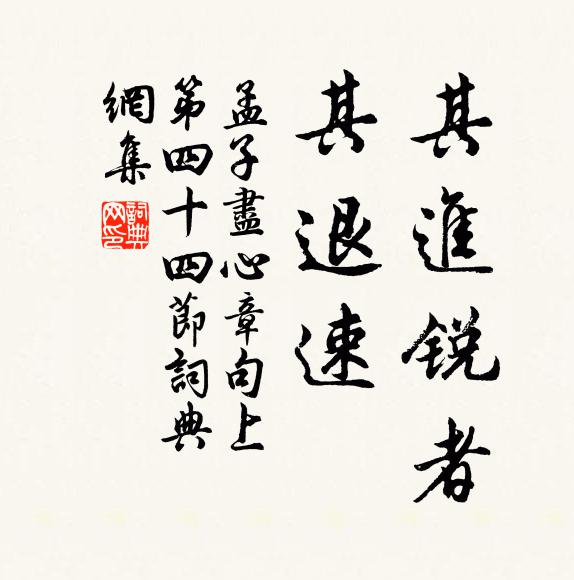 其進銳者
其退速
孟子盡心章句上
第四十四節詞典
網集
詞典
网印